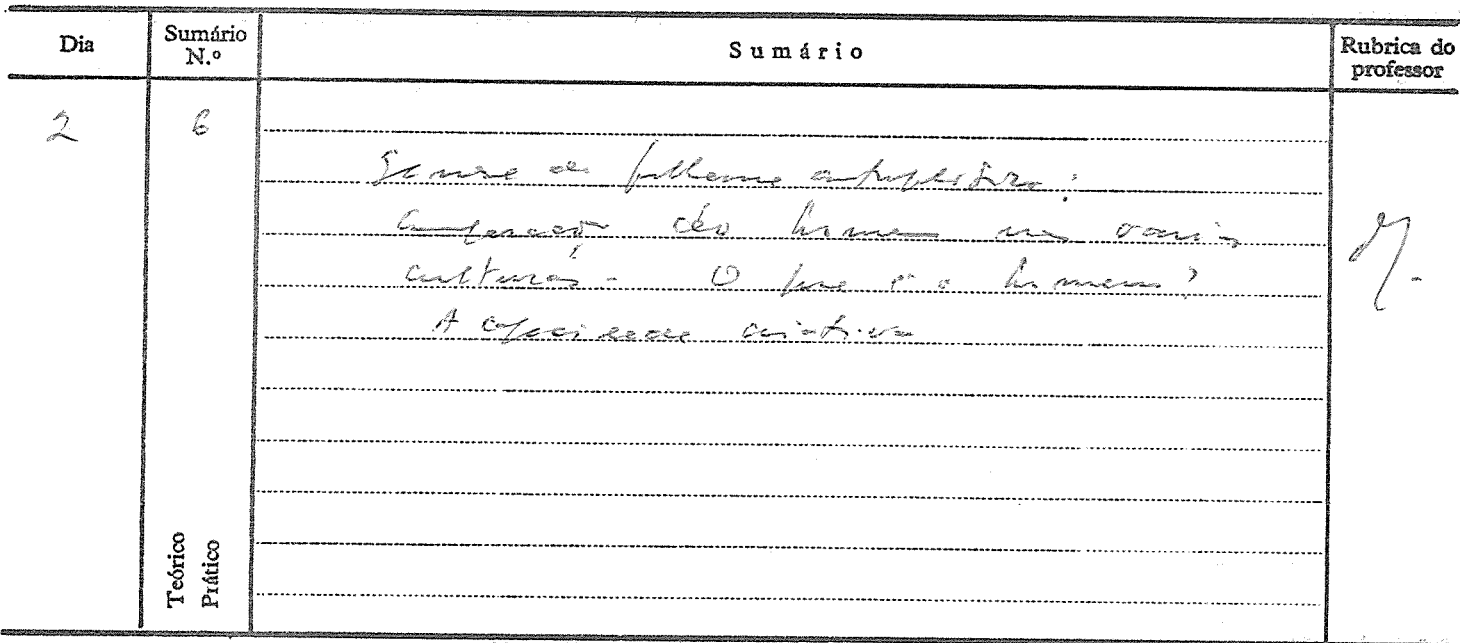 Dia Sumário N.º Sumário Rubrica do professor
2 6
problema antropológico:
do homem nas várias
culturas - O que é o homem?
A capacidade criativa
Teórico
Prático